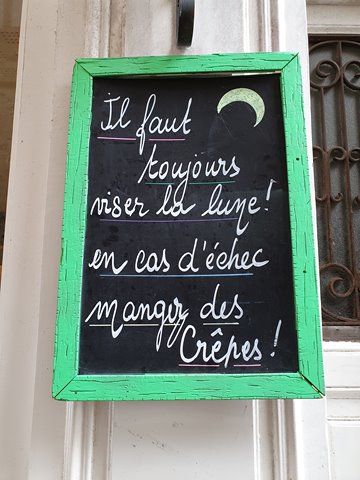 Il faut
toujours
viser la lune!
en cas d'échec
manger des
Crêpes!